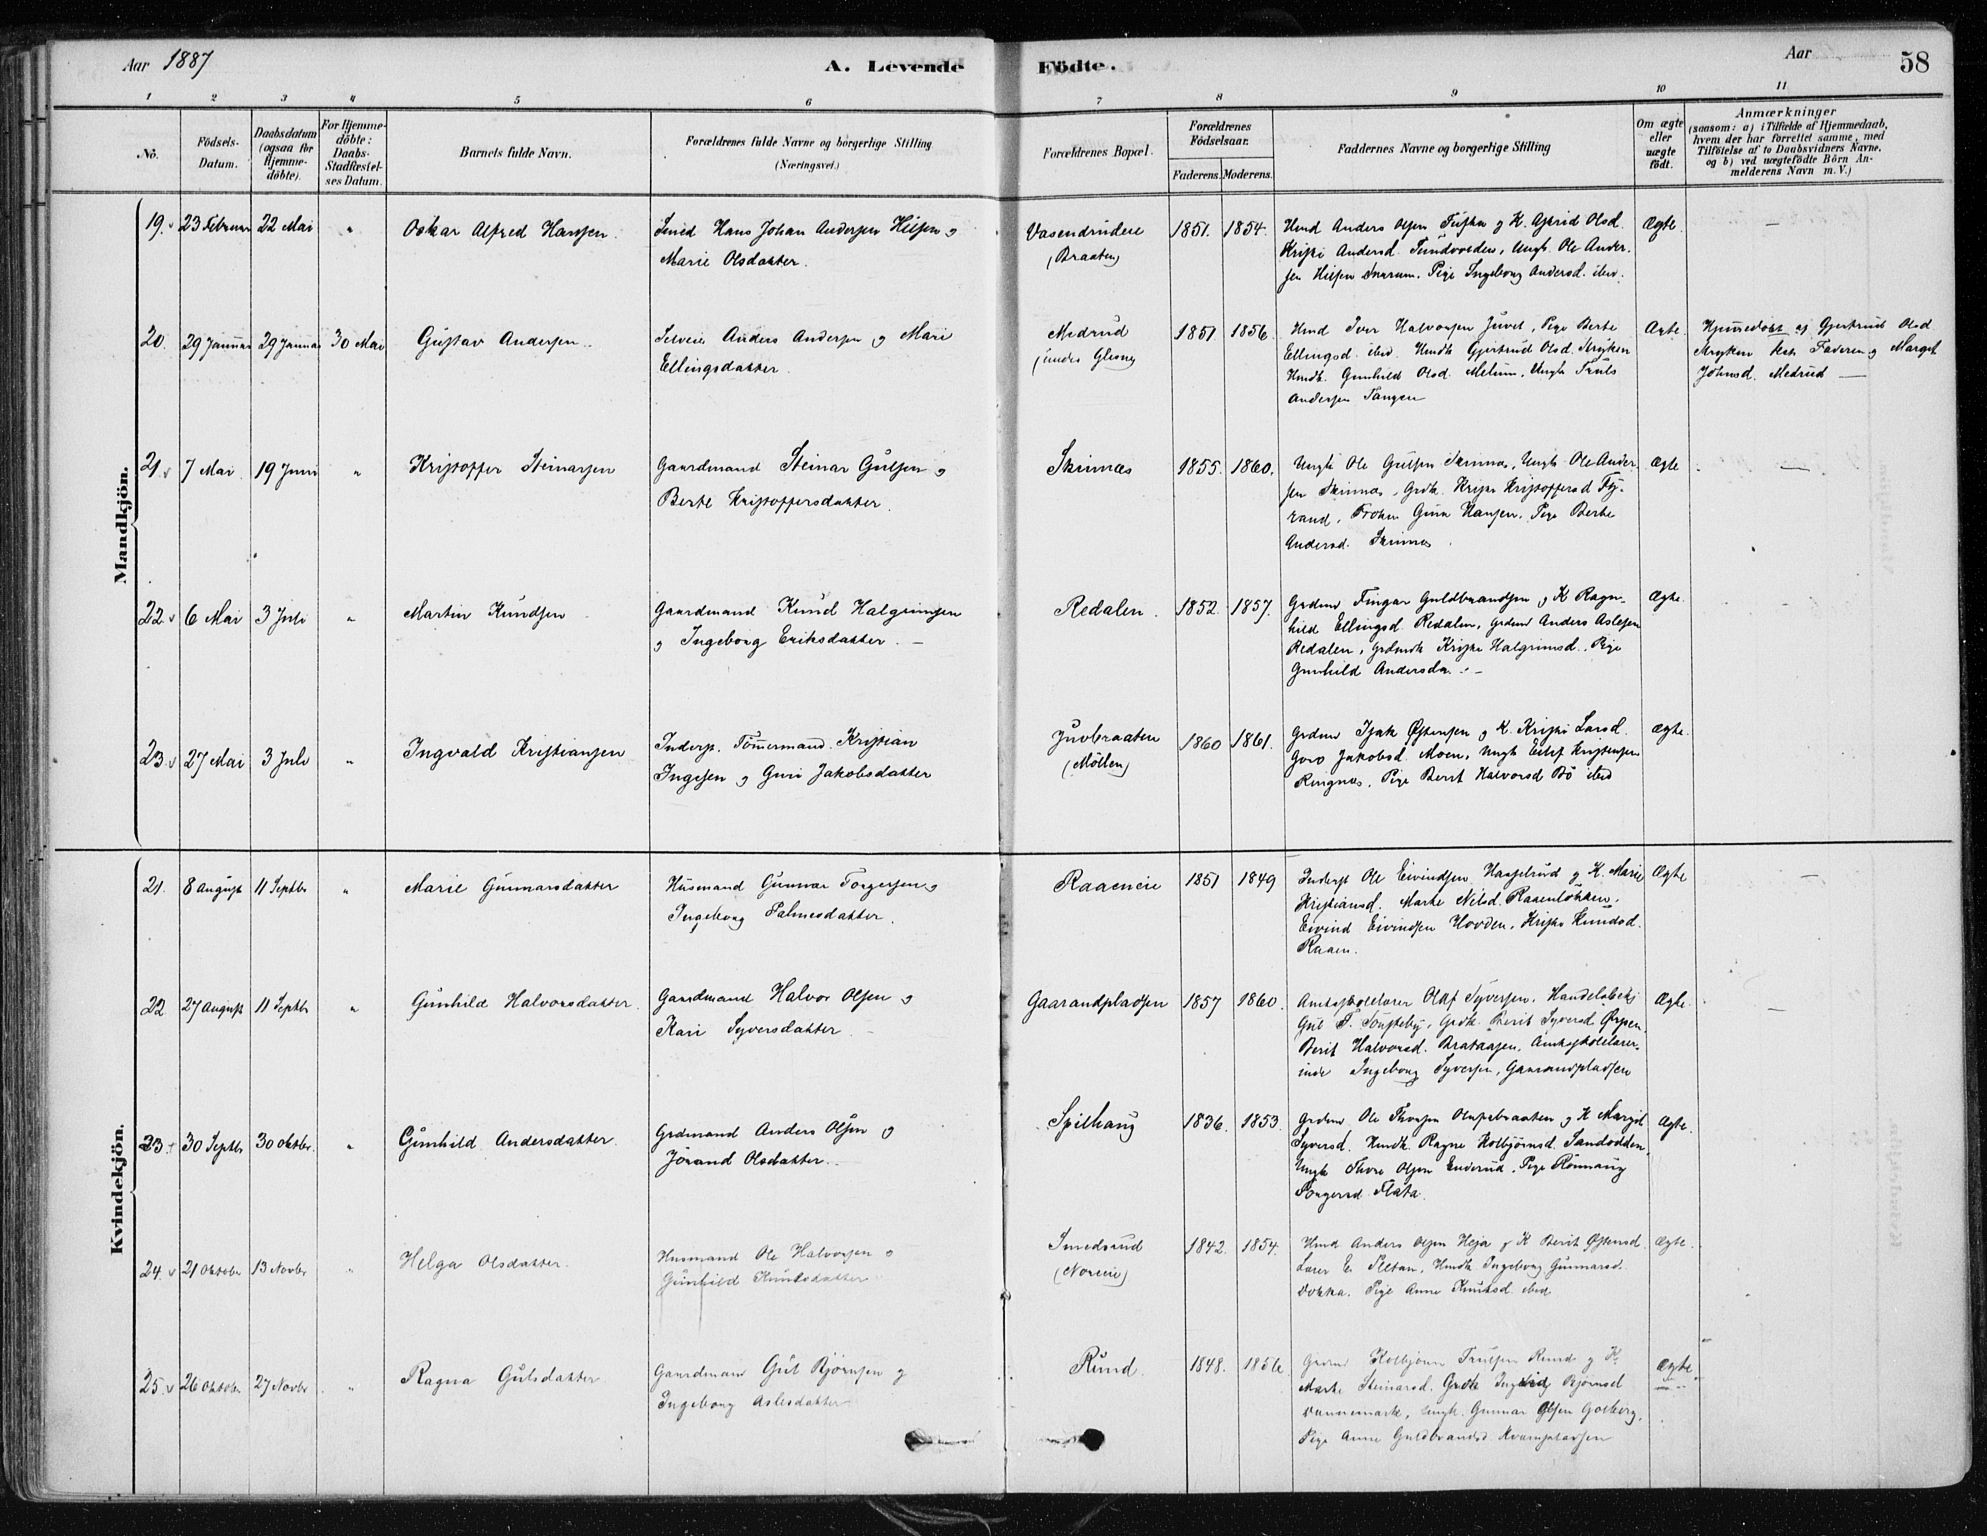 Aar 1887
A. Levende Födte.
Aar
58
1 2 3 4 5 6 7 8 9 10 11
No.
Födsels-Datum.
Daabsdatum (ogsaa for Hjemmedöbte).
For Hjemmedöbte: Daabs-Stadfæstelses Datum.
Barnets fulde Navn.
Forældrenes fulde Navne og borgerlige Stilling (Næringsvei).
Forældrenes Bopæl.
Forældrenes Födselsaar.
Faderens. Moderens.
Faddernes Navne og borgerlige Stilling
Om ægte eller uægte födt.
Anmærkninger
(saasom: a) i Tilfælde af Hjemmedaab,
hvem der har forrettet samme, med
Tilföielse af to Daabsvidners Navne,
og b) ved uægtefödte Börn An-
melderens Navn m. V.)
Mandkjön.
19. 23 Februar 22 Mai " Oskar Alfred Hansen. Smed Hans Johan Andersen Hilsen og
Marie Olsdatter.
Vasendrudeie
(Braaten)
1851. 1854.
Hmd Anders Olsen K. Astrid Olsd.
Kristi Andersd. Ungk. Ole Ander-
sen Hilsen Pige Ingeborg Andersd. ibid.
Ægte. —
20. 29 Januar 29 Januar 30 Mai Gustav Andersen. Anders Andersen og Mari
Ellingsdatter.
Medrud
(under Glesne)
1851 1856.
Hmd Iver Halvorsen Juvet, Pige Berte
Ellingsd. ibid. Hmdk Gjertrud Olsd. Stryken
Hmdk. Gunhild Olsd. Melum, Ungk Truls
Andersen Tangen
Ægte.
Hjemmedøbt af Gjertrud Olsd
Stryken Faderen og Margit
Johnsd. Medrud —
21. 7 Mai. 19 Juni " Kristoffer Steinarsen Gaardmand Steinar Gulsen og
Berte Kristoffersdatter.
Skinnes
1855. 1860.
Ungk Ole Gulsen Skinnes, Ungk. Ole Ander-
sen Skinnes, Grdk. Kristi Kristoffersd Fy-
rand, Frøken Hansen, Pige Berte
Andersd. Skinnes.
Ægte —
22. 6 Mai 3 Juli " Martin Knudsen Gaardmand Knud Halgrimsen
og Ingeborg Eriksdatter. —
Redalen.
1852. 1857.
Grdmd Fingar Guldbrandsen og K Ragn-
hild Ellingsd. Redalen, Grdmd Anders Aslesen
Redalen, Grdmdk Kristi Halgrimsd., Pige
Gunhild Andersda. —
Ægte.
23. 27 Mai 3 Juli " Ingvald Kristiansen Inderst. Tømmermand. Kristian
Ingesen og Guri Jakobsdatter
Juvbraaten
(Møllen)
1860 1861.
Grdmd Isak Østensen og K. Kristi Larsd.
Goro Jakobsd. Moen, Ungk Kristensen
Ringnes, Pige Berit Halvorsd Bö ibid
Ægte.
Kvindekjön.
21. 8 August 11 Septbr " Marie Gunnarsdatter Husmand Gunnar Torgersen og
Ingeborg Palmesdatter.
Raaeneie
1851 1849
Inderst Ole Eivindsen Hasselrud og K. Marie
Kristiansd. Marte Nilsd. Raaenløkken,
Eivind Eivindsen Hovden, Kristi Knudsd.
Raaen.
Ægte —
22 27 August 11 Septbr " Gunhild Halvorsdatter. Gaardmand Halvor Olsen og
Kari Syversdatter. —
Gaarandpladsen
1857 1860.
Amtsskolelærer Olaf Syversen, Handelsbetj
Gul T. Grdk. Berit Syversd Ørpen
Berit Halvorsd. Brataasen, Amtsskolelærer-
inde Ingeborg Syversen, Gaarandpladsen
Ægte. —
23. 30 Septbr 30 Oktbr. " Gunhild Andersdatter. Grdmand Anders Olsen og
Jørand Olsdatter.
Spilhaug
1836. 1853.
Grdmd, Ole Thorsen Olumsbraaten og K Margit
Syversd. Hmdk. Ragne Kolbjørnsd. Sandodden,
Ungk Thore Olsen Enderud, Pige Rønnaug
Torgersd Flata.
Ægte.
24. 21 Oktober 13 Novbr " Helga Olsdatter. Husmand Ole Halvorsen og
Gunhild Knutsdatter
Smedsrud
(Noreie)
1842. 1854.
Hmd Anders Olsen Heja og K Berit Østensd.
Lærer E. Pletan, Hmdk. Ingeborg Gunnarsd.
Dokka. Pige Anne Knutsd. ibid
Ægte.
25. 26 Oktober 27 Novbr " Ragna Gulsdatter. Gaardmand Gul Bjørnsen og
Ingeborg Aslesdatter
Rund.
1848. 1856.
Grdmd Kolbjørn Trulsen Rund og K.
Marte Steinarsd. Grdk Ingrid Bjørnsd
Dannemark, Ungk. Gunnar Olsen Golberg,
Pige Anne Guldbrandsd. Kvamspladsen
Ægte.